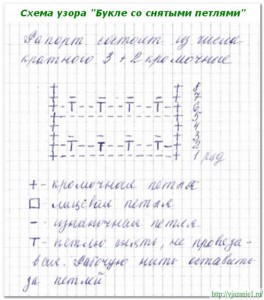 Схема узора "Букле со снятыми петлями"
Раппорт состоит из числа
кратного 3 + 2 кромочные
8
7
6
5
4
3
2
1 ряд
+ - кромочная петля
□ - лицевая петля
- - изнаночная петля
Т - петлю снять, не провяза-
выя. Рабочую нить оставить
за петлей
http://vjazanie1.ru/